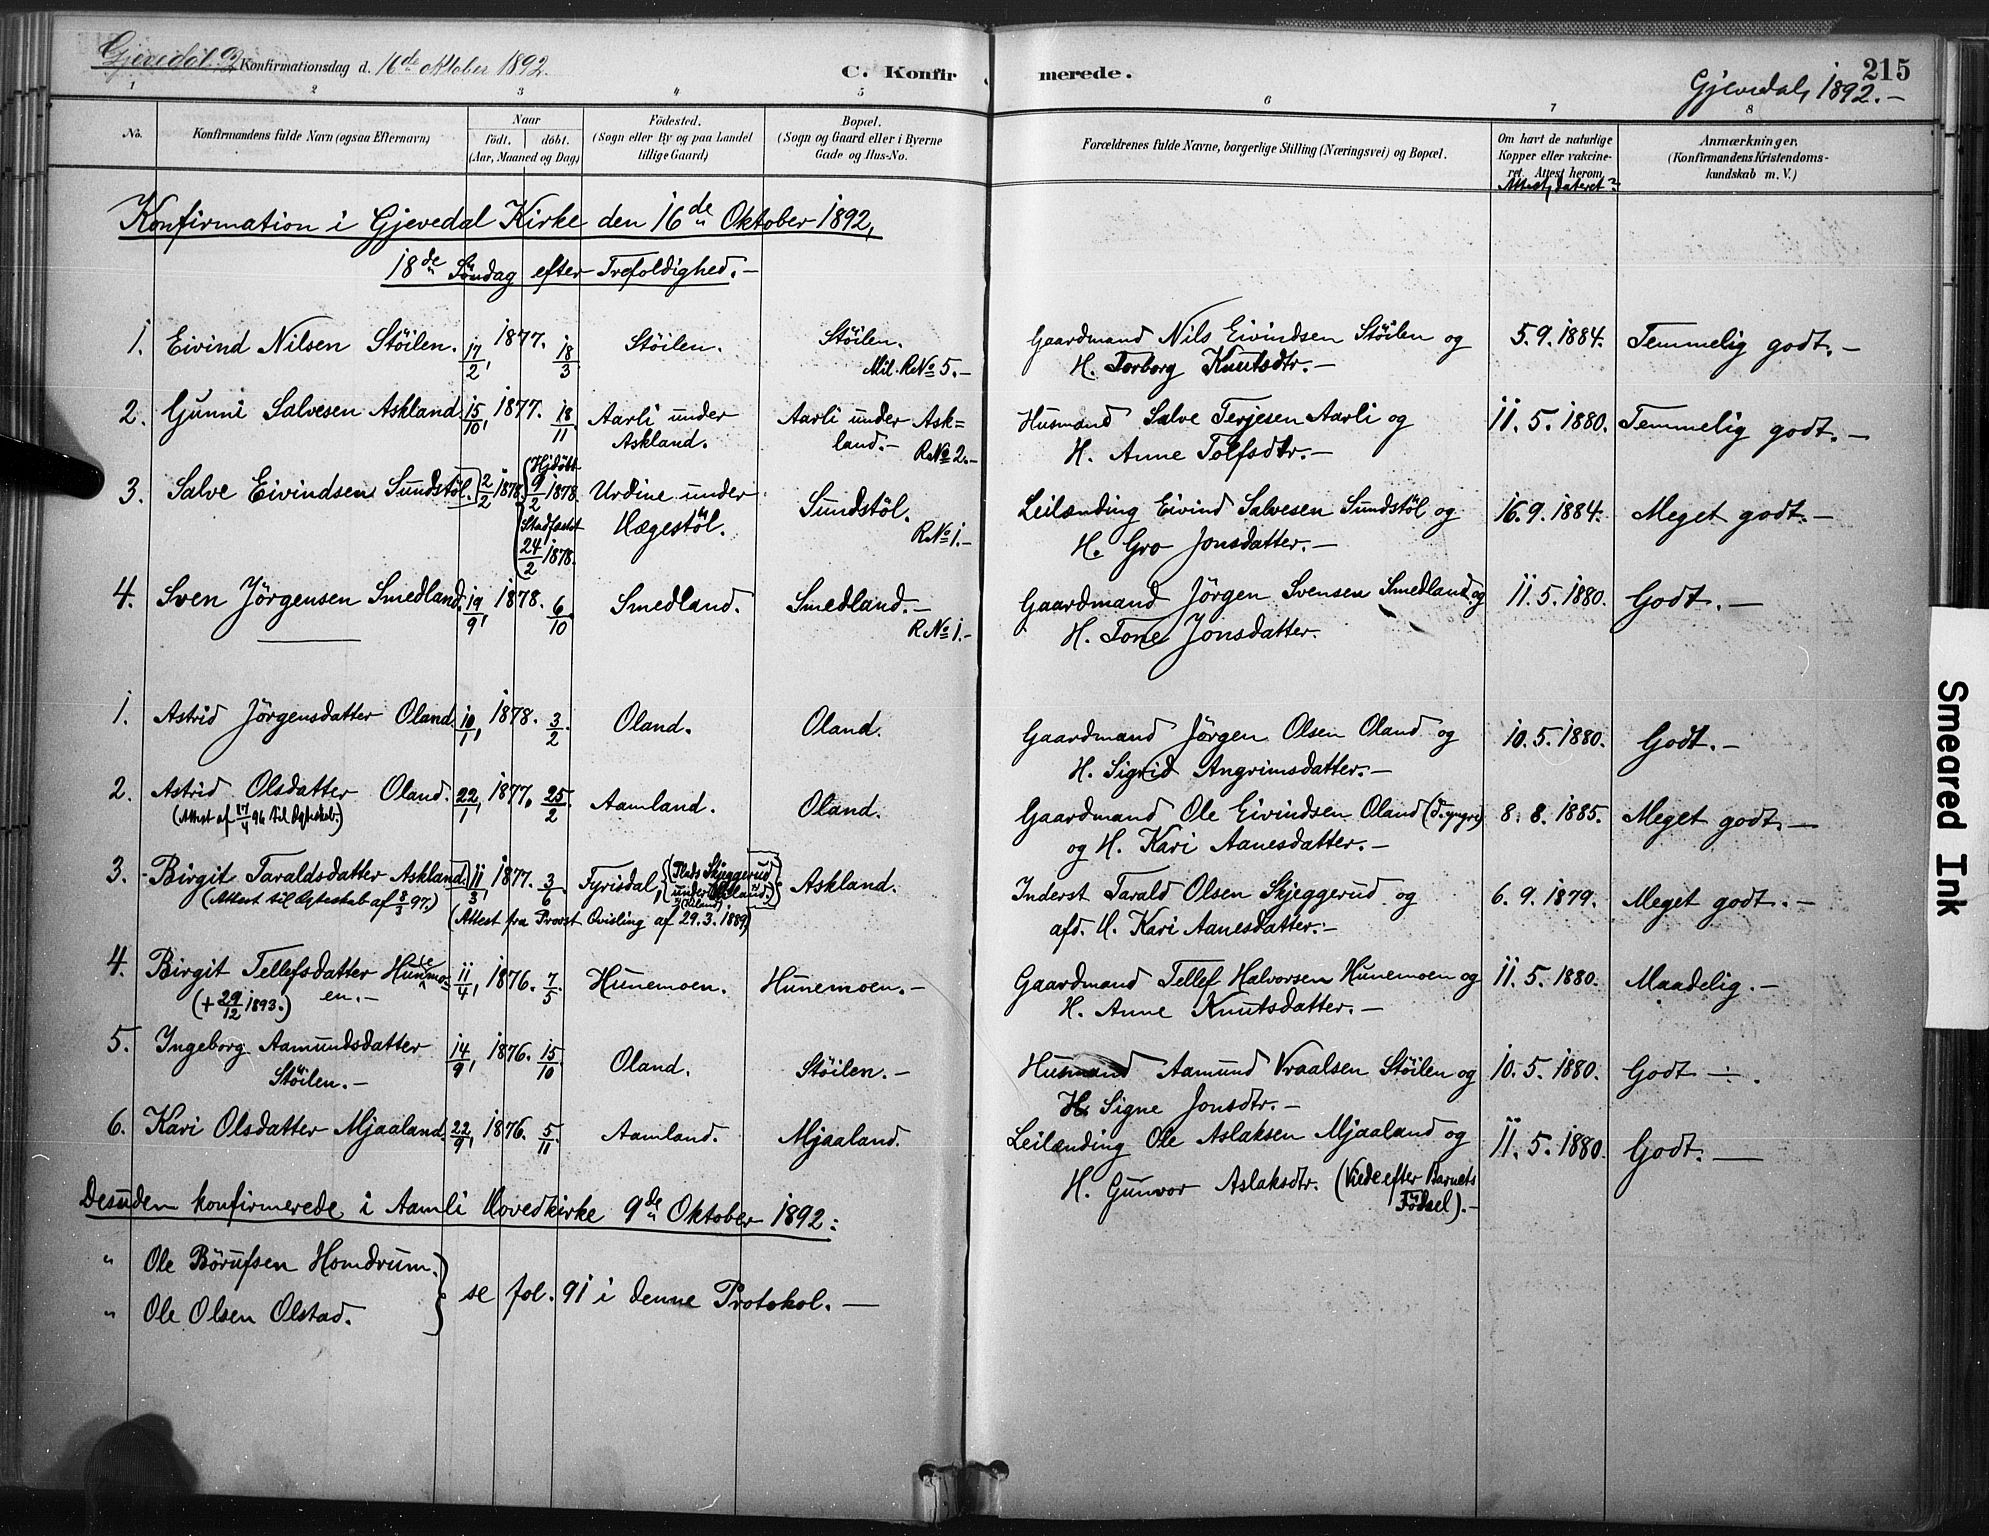 Gjevedal Konfirmationsdag d. 16de Oktober 1892.
C. Konfirmerede.
215
Gjevedal, 1892.-
1 2 3 4 5 6 7 8
No.
Konfirmandens fulde Navn (ogsaa Efternavn)
Naar
født. døbt.
(Aar, Maaned og Dag)
Fødested.
(Sogn eller By og paa Landet
tillige Gaard)
Bopæl.
(Sogn og Gaard eller i Byerne
Gade og Hus-No.
Forældrenes fulde Navne, borgerlige Stilling (Næringsvei) og Bopæl.
Om havt de naturlige
Kopper eller vakcine-
ret. Attest herom
Attest, dateret?
Anmærkninger.
(Konfirmandens Kristendoms-
kundskab m. V.)
Konfirmation i Gjevedal Kirke den 16de Oktober 1892,
18de Søndag efter Trefoldighed.-
1. Eivind Nilsen Støilen. 17/2, 1877. 18/3 Støilen. Støilen. Mil. R.No 5.- Gaardmand Nils Eivindsen Støilen og 5.9.1884. Temmelig godt.-
H. Torborg Knutsdtr.-
2. Gunni Salvesen Askland 15/10, 1877. 18/11 Aarli under Aarli under Ask= Husmand Salve Terjesen Aarli og 11.5.1880. Temmelig godt.-
Askland. land.- R.No 2.- H. Anne Tolfsdtr.-
3. Salve Eivindsen Sundstøl. 2/2 1878. (Hjdøbt 9/2 1878. Urdine under Sundstøl. Leilænding Eivind Salvesen Sundstøl og 16.9.1884. Meget godt.-
Stadfæstet 24/2 1878. Hægestøl. R.No 1.- H. Gro Jonsdatter.-
4. Sven Jörgensen Smedland 19/9, 1878. 6/10 Smedland. Smedland.- Gaardmand Jörgen Svensen Smedland og 11.5.1880. Godt.-
R.No 1.- H. Tone Jonsdatter.
1. Astrid Jörgensdatter Oland. 10/1, 1878. 3/2 Oland. Oland. Gaardmand Jörgen Olsen Oland og 10.5.1880. Godt.-
H. Sigrid Angrimsdatter.-
2. Astrid Olsdatter Oland. 22/1, 1877. 25/2 Aamland. Oland. Gaardmand Ole Eivindsen Oland (d. yngre) 8.8.1885. Meget godt.-
(Attest af 17/4 96 til Ægteskab.) og H. Kari Aanesdatter.-
3. Birgit Taraldsdatter Askland. 11/3, 1877. 3/6 Fyrisdal, (Plads Skjeggerud under Askland. Inderst Tarald Olsen Skjeggerud og 6.9.1879. Meget godt.-
(Attest til Ægteskab af 8/3 97.) (Attest fra Provst Qvisling af 29.3.1889) afd. H. Kari Aanesdatter.-
4. Birgit Tellefsdatter Hunemo= 11/4, 1876. 7/5. Hunemoen. Hunemoen.- Gaardmand Tellef Halvorsen Hunemoen og 11.5.1880. Maadelig.-
(+ 29/12 1893.) en.- H. Anne Knutsdatter.-
5. Ingeborg Aamundsdatter 14/9, 1876. 15/10 Oland. Støilen.- Husmand Aamund Vraalsen Støilen og 10.5.1880. Godt -.
Støilen.- H. Signe Jonsdtr.-
6. Kari Olsdatter Mjaaland. 22/9, 1876. 5/11. Aamland. Mjaaland. Leilænding Ole Aslaksen Mjaaland og 11.5.1880. Godt.-
H. Gunvor Aslaksdtr. (Viede efter Barnets
Fødsel).-
Desuden konfirmerede i Aamli Hovedkirke 9de Oktober 1892:
" Ole Börufsen Homdrum.
" Ole Olsen Olstad.
} se fol. 91 i denne Protokol.-
Smeared Ink